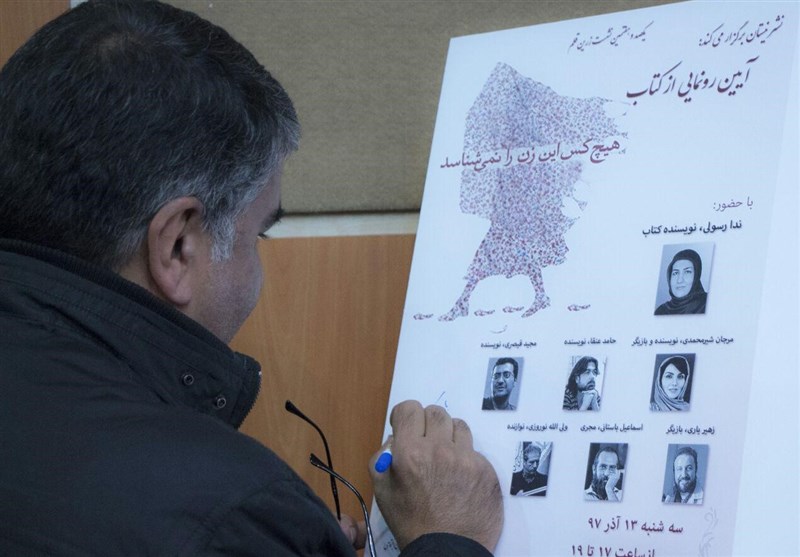 نشر نیستان برگزار می کند:
یکصد و هشتمین نشست زرین قلم
آیین رونمایی از کتاب
هیچ کس این زن را نمی‌شناسد
با حضور:
ندا رسولی، نویسنده کتاب
مرجان شیرمحمدی، نویسنده و بازیگر
حامد عنقا، نویسنده
مجید قیصری، نویسنده
زهیر یاری، بازیگر
اسماعیل باستانی، مجری
ولی الله نوروزی، نوازنده
سه شنبه ۱۳ آذر ۹۷
از ساعت ۱۷ تا ۱۹